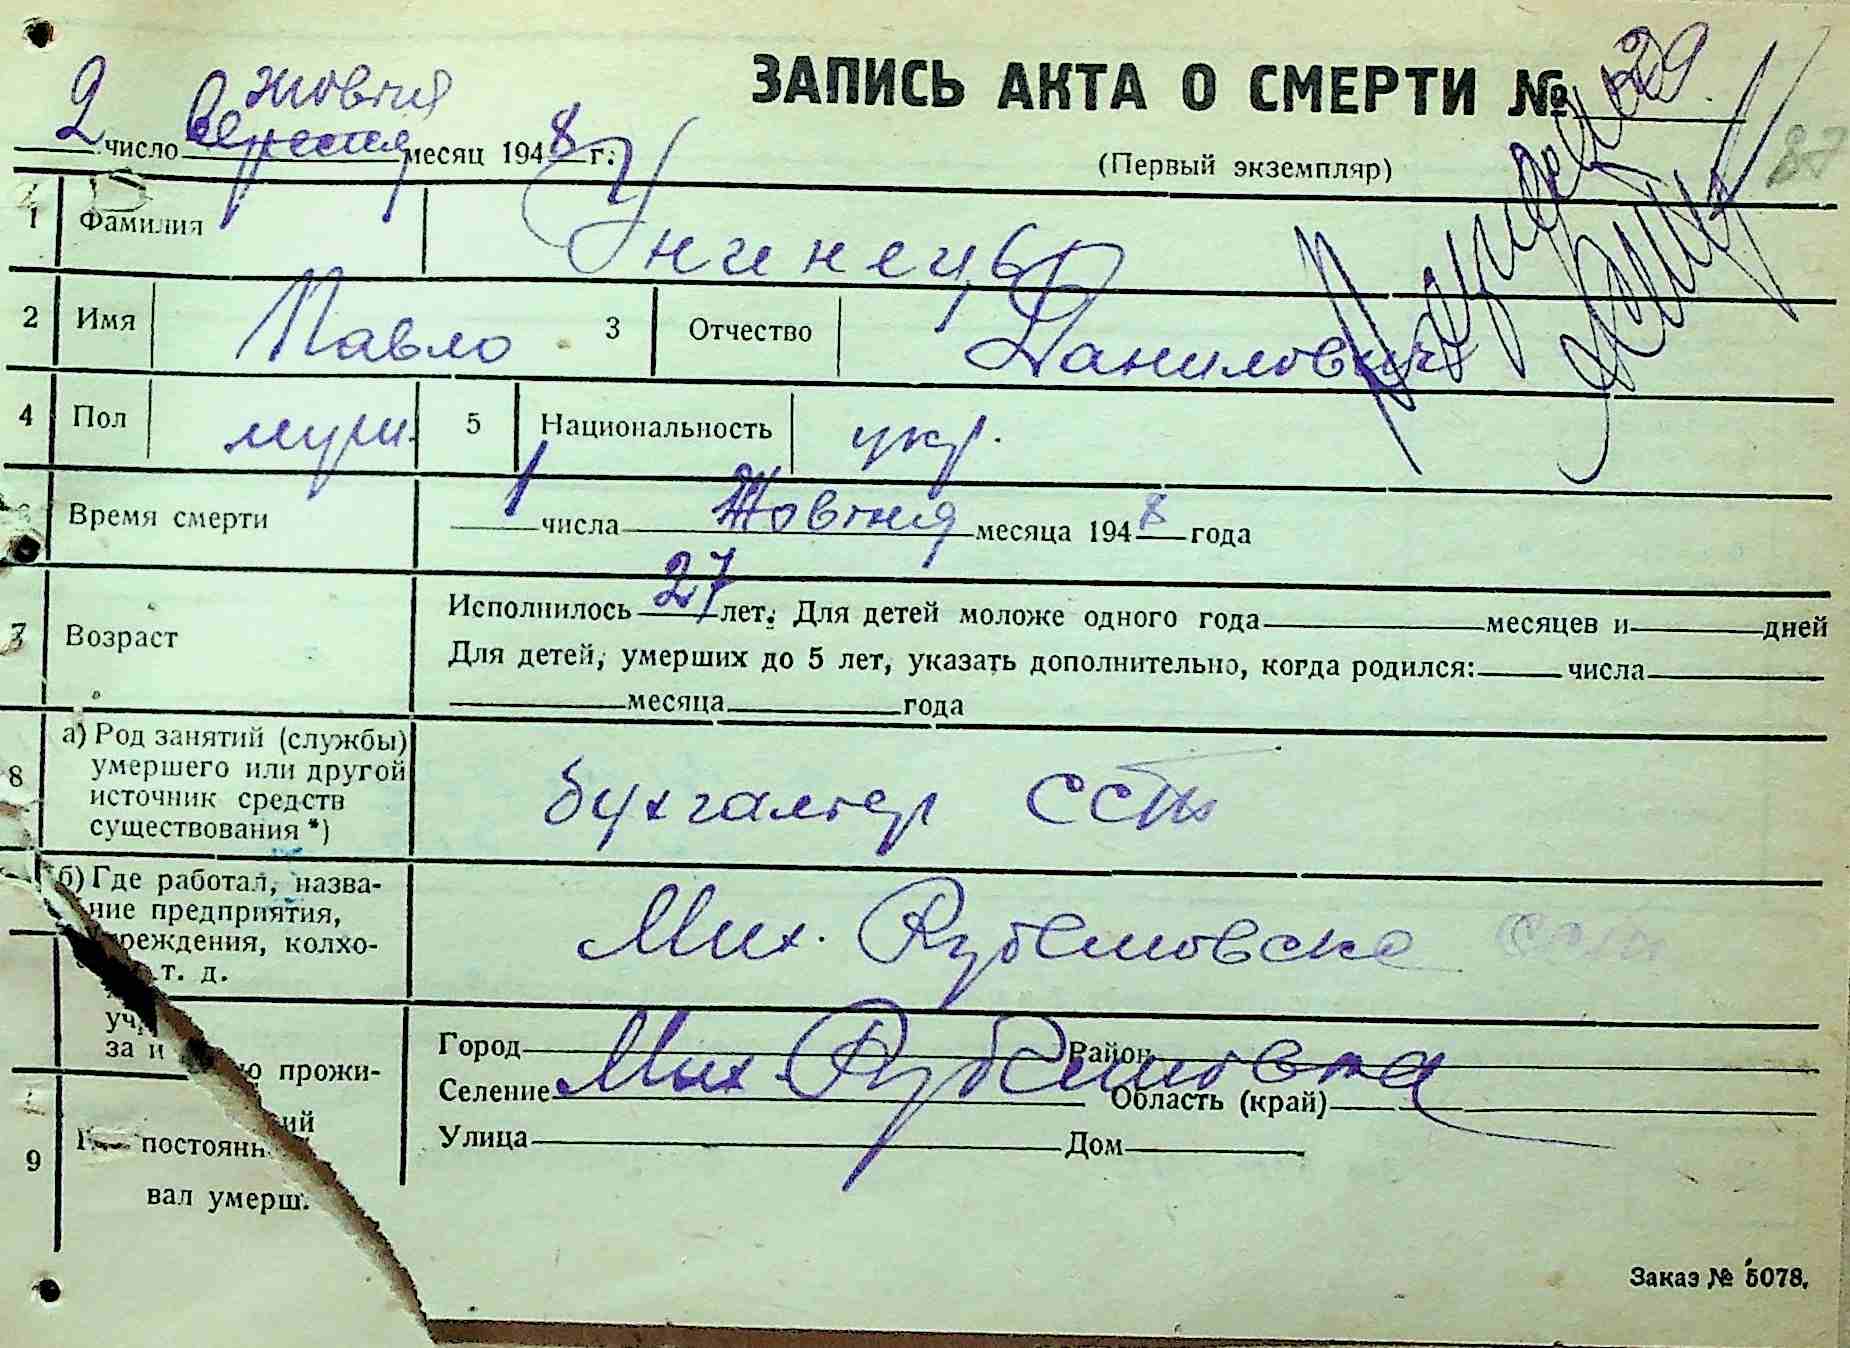 ЗАПИСЬ АКТА О СМЕРТИ № 29
жовтня
2 число вересня месяц 1948 г.
(Первый экземпляр)
87
1 Фамилия Унинець
2 Имя Павло 3 Отчество Данилович
4 Пол муж. 5 Национальность укр.
Время смерти 1 числа Жовтня месяца 1948 года
7 Возраст Исполнилось 27 лет. Для детей моложе одного года месяцев и дней
Для детей, умерших до 5 лет, указать дополнительно, когда родился: числа
месяца года
8 а) Род занятий (службы)
умершего или другой
источник средств
существования *)
бухгалтер ССТ
б) Где работал, назва-
ние предприятия,
учреждения, колхо-
т. д.
Мих. Рубельовске
за и
ю прожи-
Город Район
Селение Мих. Область (край)
9 постоянн
Улица Дом
вал умерш.
Заказ № 5078.